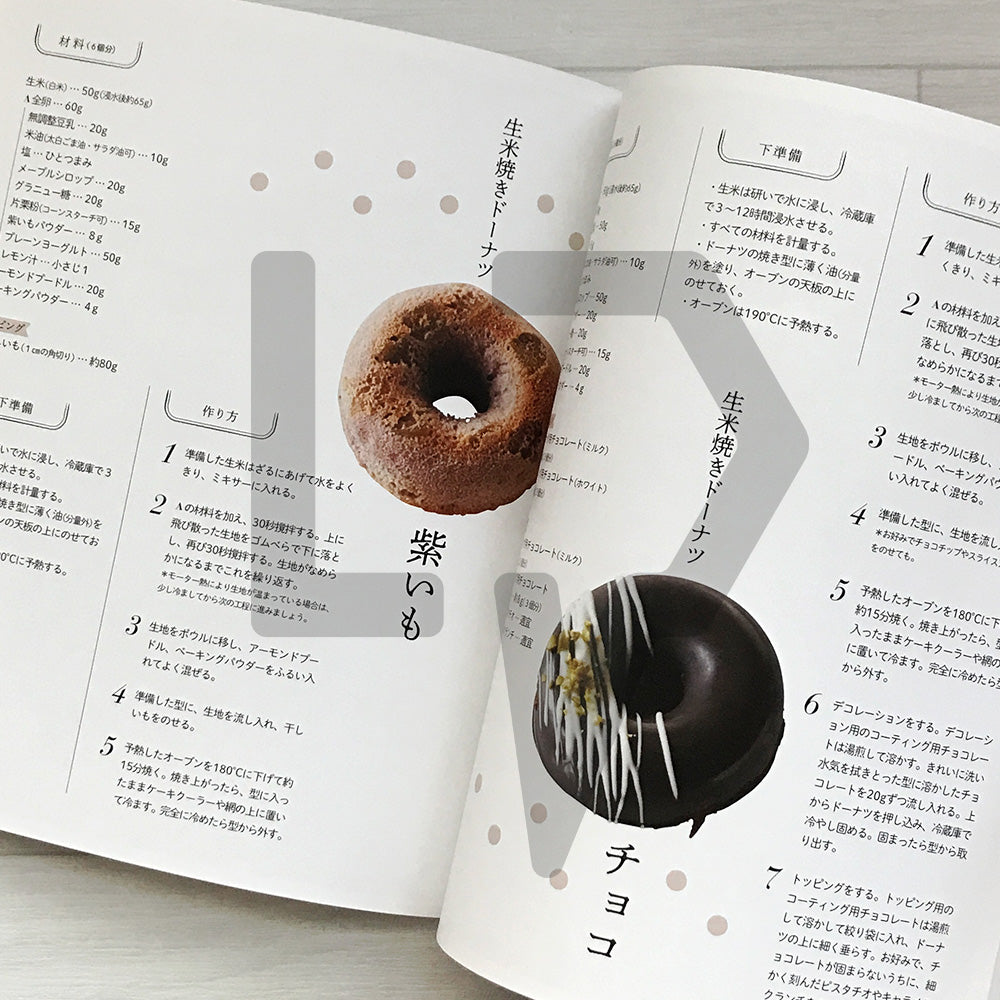 材料(6個分)
生米(白米)…50g(浸水後約65g)
A全卵…60g
無調整豆乳…20g
米油(太白ごま油・サラダ油可)…10g
塩…ひとつまみ
メープルシロップ…20g
グラニュー糖…20g
片栗粉(コーンスターチ可)…15g
紫いもパウダー…8g
プレーンヨーグルト…50g
レモン汁…小さじ1
アーモンドプードル…20g
ーキングパウダー…4g
ピング
いも(1cmの角切り)…約80g
下準備
いで水に浸し、冷蔵庫で3
水させる。
料を計量する。
焼き型に薄く油(分量外)を
ンの天板の上にのせてお
0℃に予熱する。
作り方
1 準備した生米はざるにあげて水をよく
きり、ミキサーに入れる。
2 Aの材料を加え、30秒撹拌する。上に
飛び散った生地をゴムべらで下に落と
し、再び30秒撹拌する。生地がなめら
かになるまでこれを繰り返す。
*モーター熱により生地が温まっている場合は、
少し冷ましてから次の工程に進みましょう。
3 生地をボウルに移し、アーモンドプー
ドル、ベーキングパウダーをふるい入
れてよく混ぜる。
4 準備した型に、生地を流し入れ、干し
いもをのせる。
5 予熱したオーブンを180℃に下げて約
15分焼く。焼き上がったら、型に入っ
たままケーキクーラーや網の上に置い
て冷ます。完全に冷めたら型から外す。
生米焼きドーナツ
紫いも
サラダ油可)…10g
プ…50g
…20g
…20g
スターチ可)…15g
ドル…20g
ダー…4g
用チョコレート(ミルク)
用チョコレート(ホワイト)
チョコレート(ミルク)
チョコレート
約8g(3個分)
チオ…適宜
ンチ…適宜
下準備
・生米は研いで水に浸し、冷蔵庫
で3〜12時間浸水させる。
・すべての材料を計量する。
・ドーナツの焼き型に薄く油(分量
外)を塗り、オーブンの天板の上に
のせておく。
・オーブンは190℃に予熱する。
生米焼きドーナツ
チョコ
作り方
1 準備した生米
くきり、ミキ
2 Aの材料を加え
に飛び散った生
落とし、再び30秒
なめらかになるま
*モーター熱により生地
少し冷ましてから次の工程
3 生地をボウルに移し、
ードル、ベーキングパウ
い入れてよく混ぜる。
4 準備した型に、生地を流し
*お好みでチョコチップやスライス
をのせても。
5 予熱したオーブンを180℃に下
約15分焼く。焼き上がったら、型
入ったままケーキクーラーや網の
に置いて冷ます。完全に冷めたら型
から外す。
6 デコレーションをする。デコレーシ
ョン用のコーティング用チョコレー
トは湯煎して溶かす。きれいに洗い
水気を拭きとった型に溶かしたチョ
コレートを20gずつ流し入れる。上
からドーナツを押し込み、冷蔵庫で
冷やし固める。固まったら型から取
り出す。
7 トッピングをする。トッピング用の
コーティング用チョコレートは湯煎
して溶かして絞り袋に入れ、ドーナ
ツの上に細く垂らす。お好みで、チ
ョコレートが固まらないうちに、細
かく刻んだピスタチオやキャラ